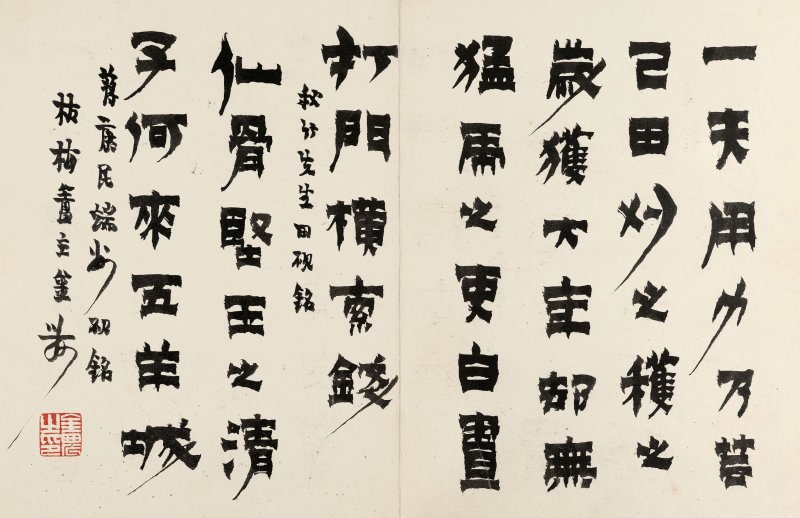 一夫用力乃菑
己田刈之穫之
歲獲大年却無
猛虎之吏白晝
打門橫索錢
秋竹先生田硯銘
仙骨堅玉之清
子何來五羊城
蔣康民端州硯銘
枯梅盦主金農
金農之印